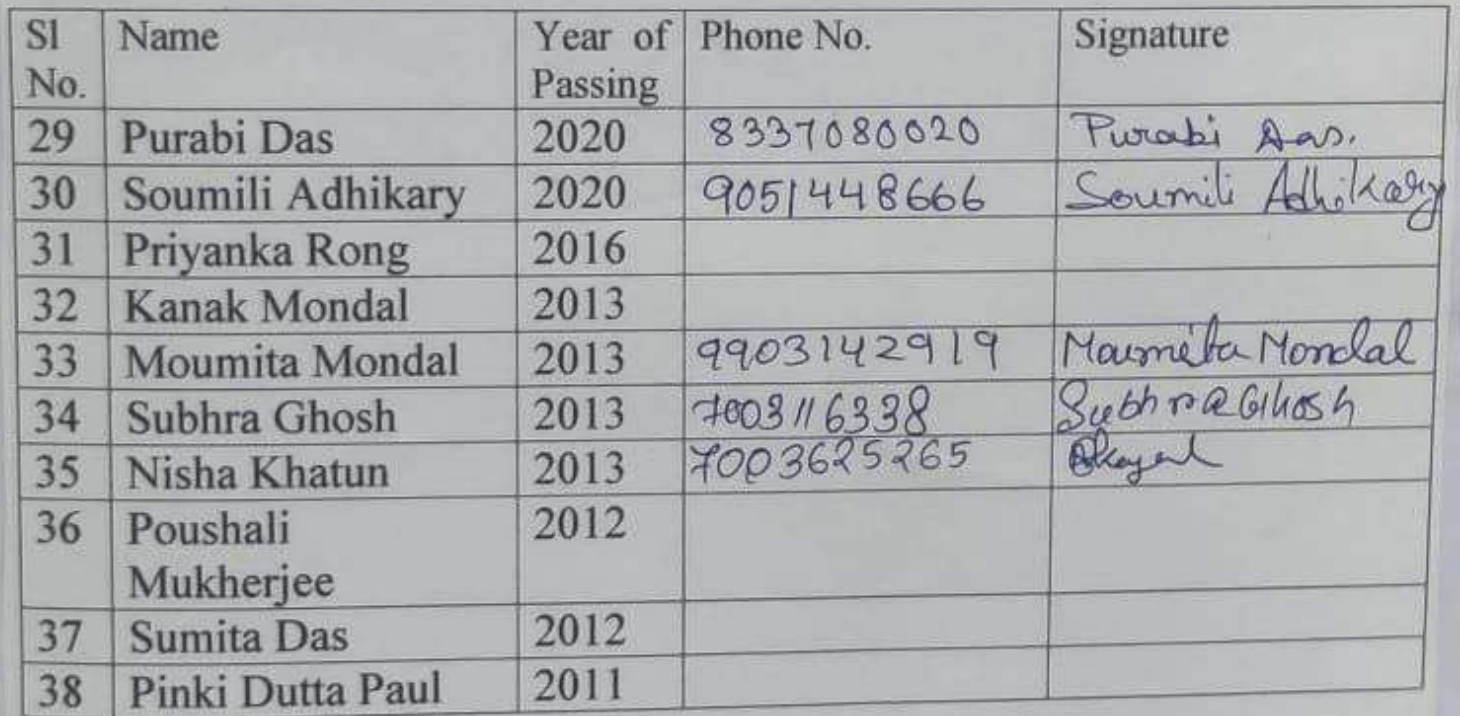 Sl No. Name Year of Passing Phone No. Signature
29 Purabi Das 2020 8337080020 Purabi Das.
30 Soumili Adhikary 2020 9051448666 Soumili Adhikary
31 Priyanka Rong 2016
32 Kanak Mondal 2013
33 Moumita Mondal 2013 9903142919 Moumita Mondal
34 Subhra Ghosh 2013 7003116338 Subhra Ghosh
35 Nisha Khatun 2013 7003625265
36 Poushali Mukherjee 2012
37 Sumita Das 2012
38 Pinki Dutta Paul 2011